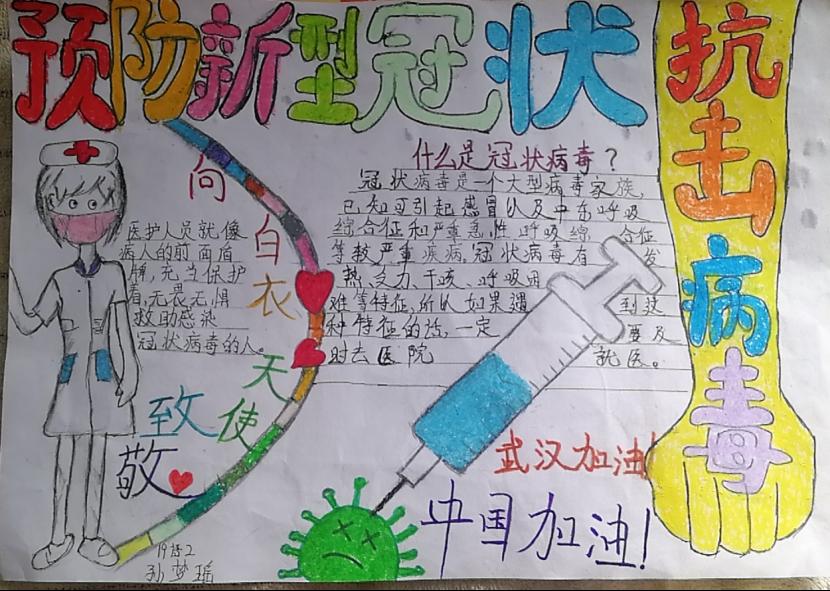 预防新型冠状
抗击病毒
向白衣天使致敬
医护人员就像
病人的前面盾
牌,充当保护
着,无畏无惧
救助感染
冠状病毒的人。
什么是冠状病毒?
冠状病毒是一个大型病毒家族,
已知可引起感冒以及中东呼吸
综合征和严重急性呼吸综合征
等较严重疾病,冠状病毒有发
热、乏力、干咳、呼吸困
难等特征,所以如果遇到这
种特征的话,一定要及
时去医院就医。
武汉加油!
中国加油!
孙梦瑶